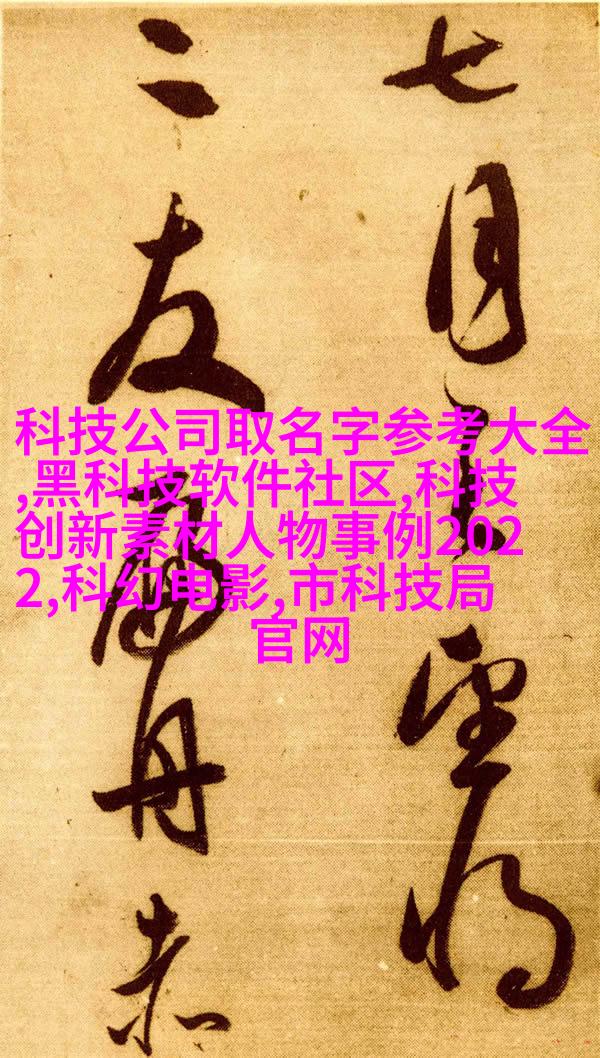 七月望将
二友舟赤
科技公司取名字参考大全
,黑科技软件社区,科技
创新素材人物事例202
2,科幻电影,市科技局
官网